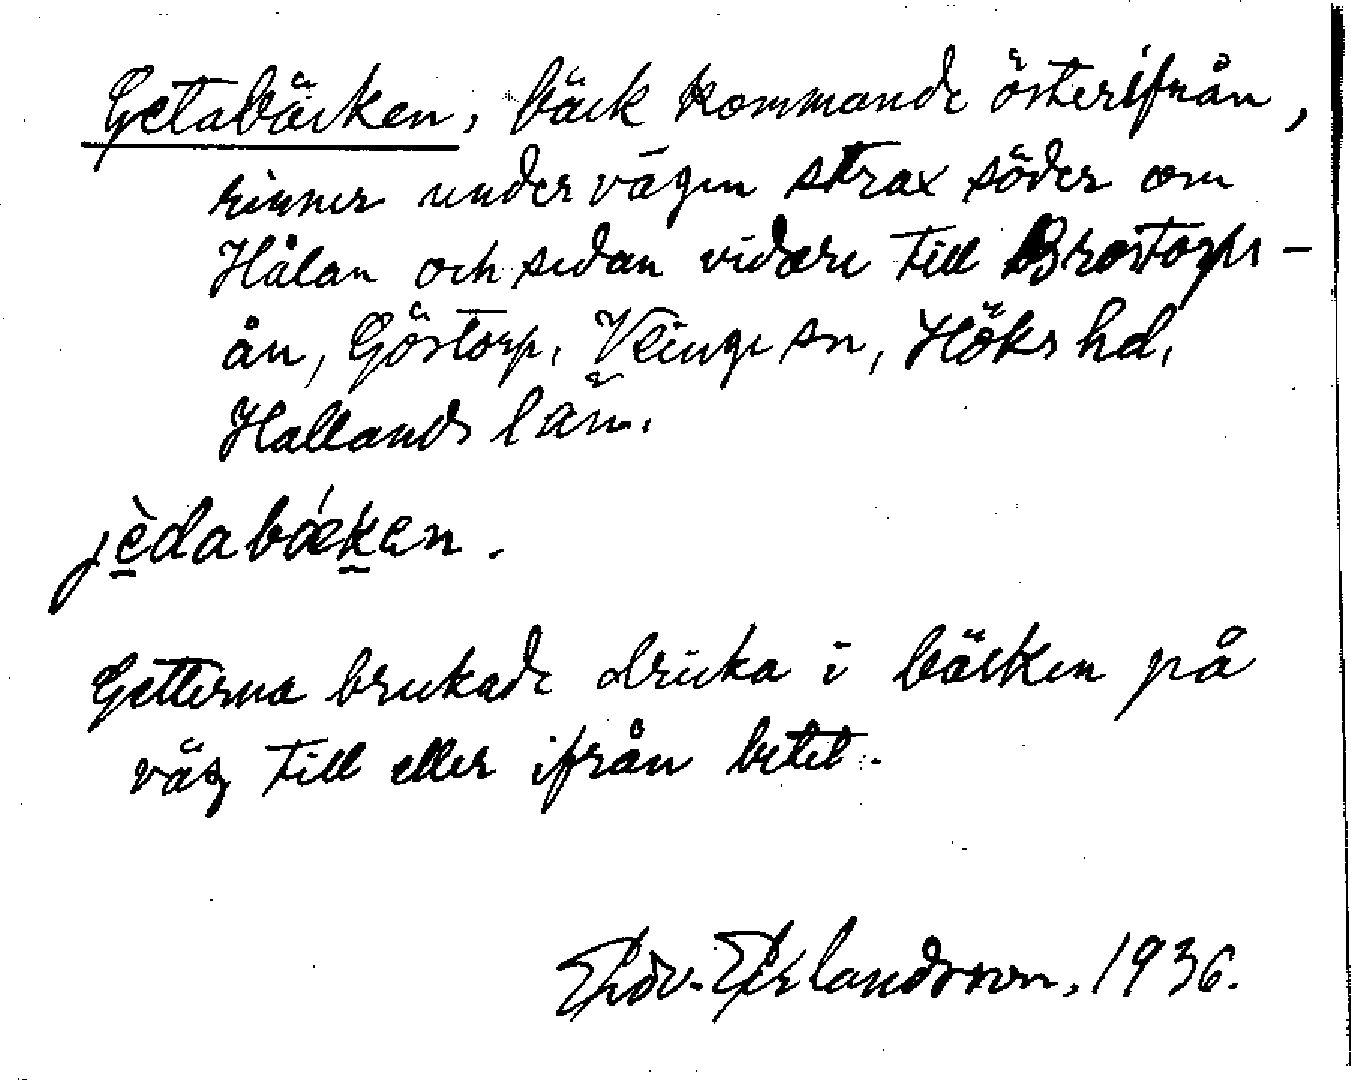 Getabäcken, bäck kommande österifrån,
rinner under vägen strax söder om
Hålan och sedan vidare till Brostorps-
ån, Göstorp, Veinge sn, Höks hd,
Hallands län.
jèdabǽken.
Getterna brukade dricka i bäcken på
väg till eller ifrån betet.
Edv. Erlandsson, 1936.